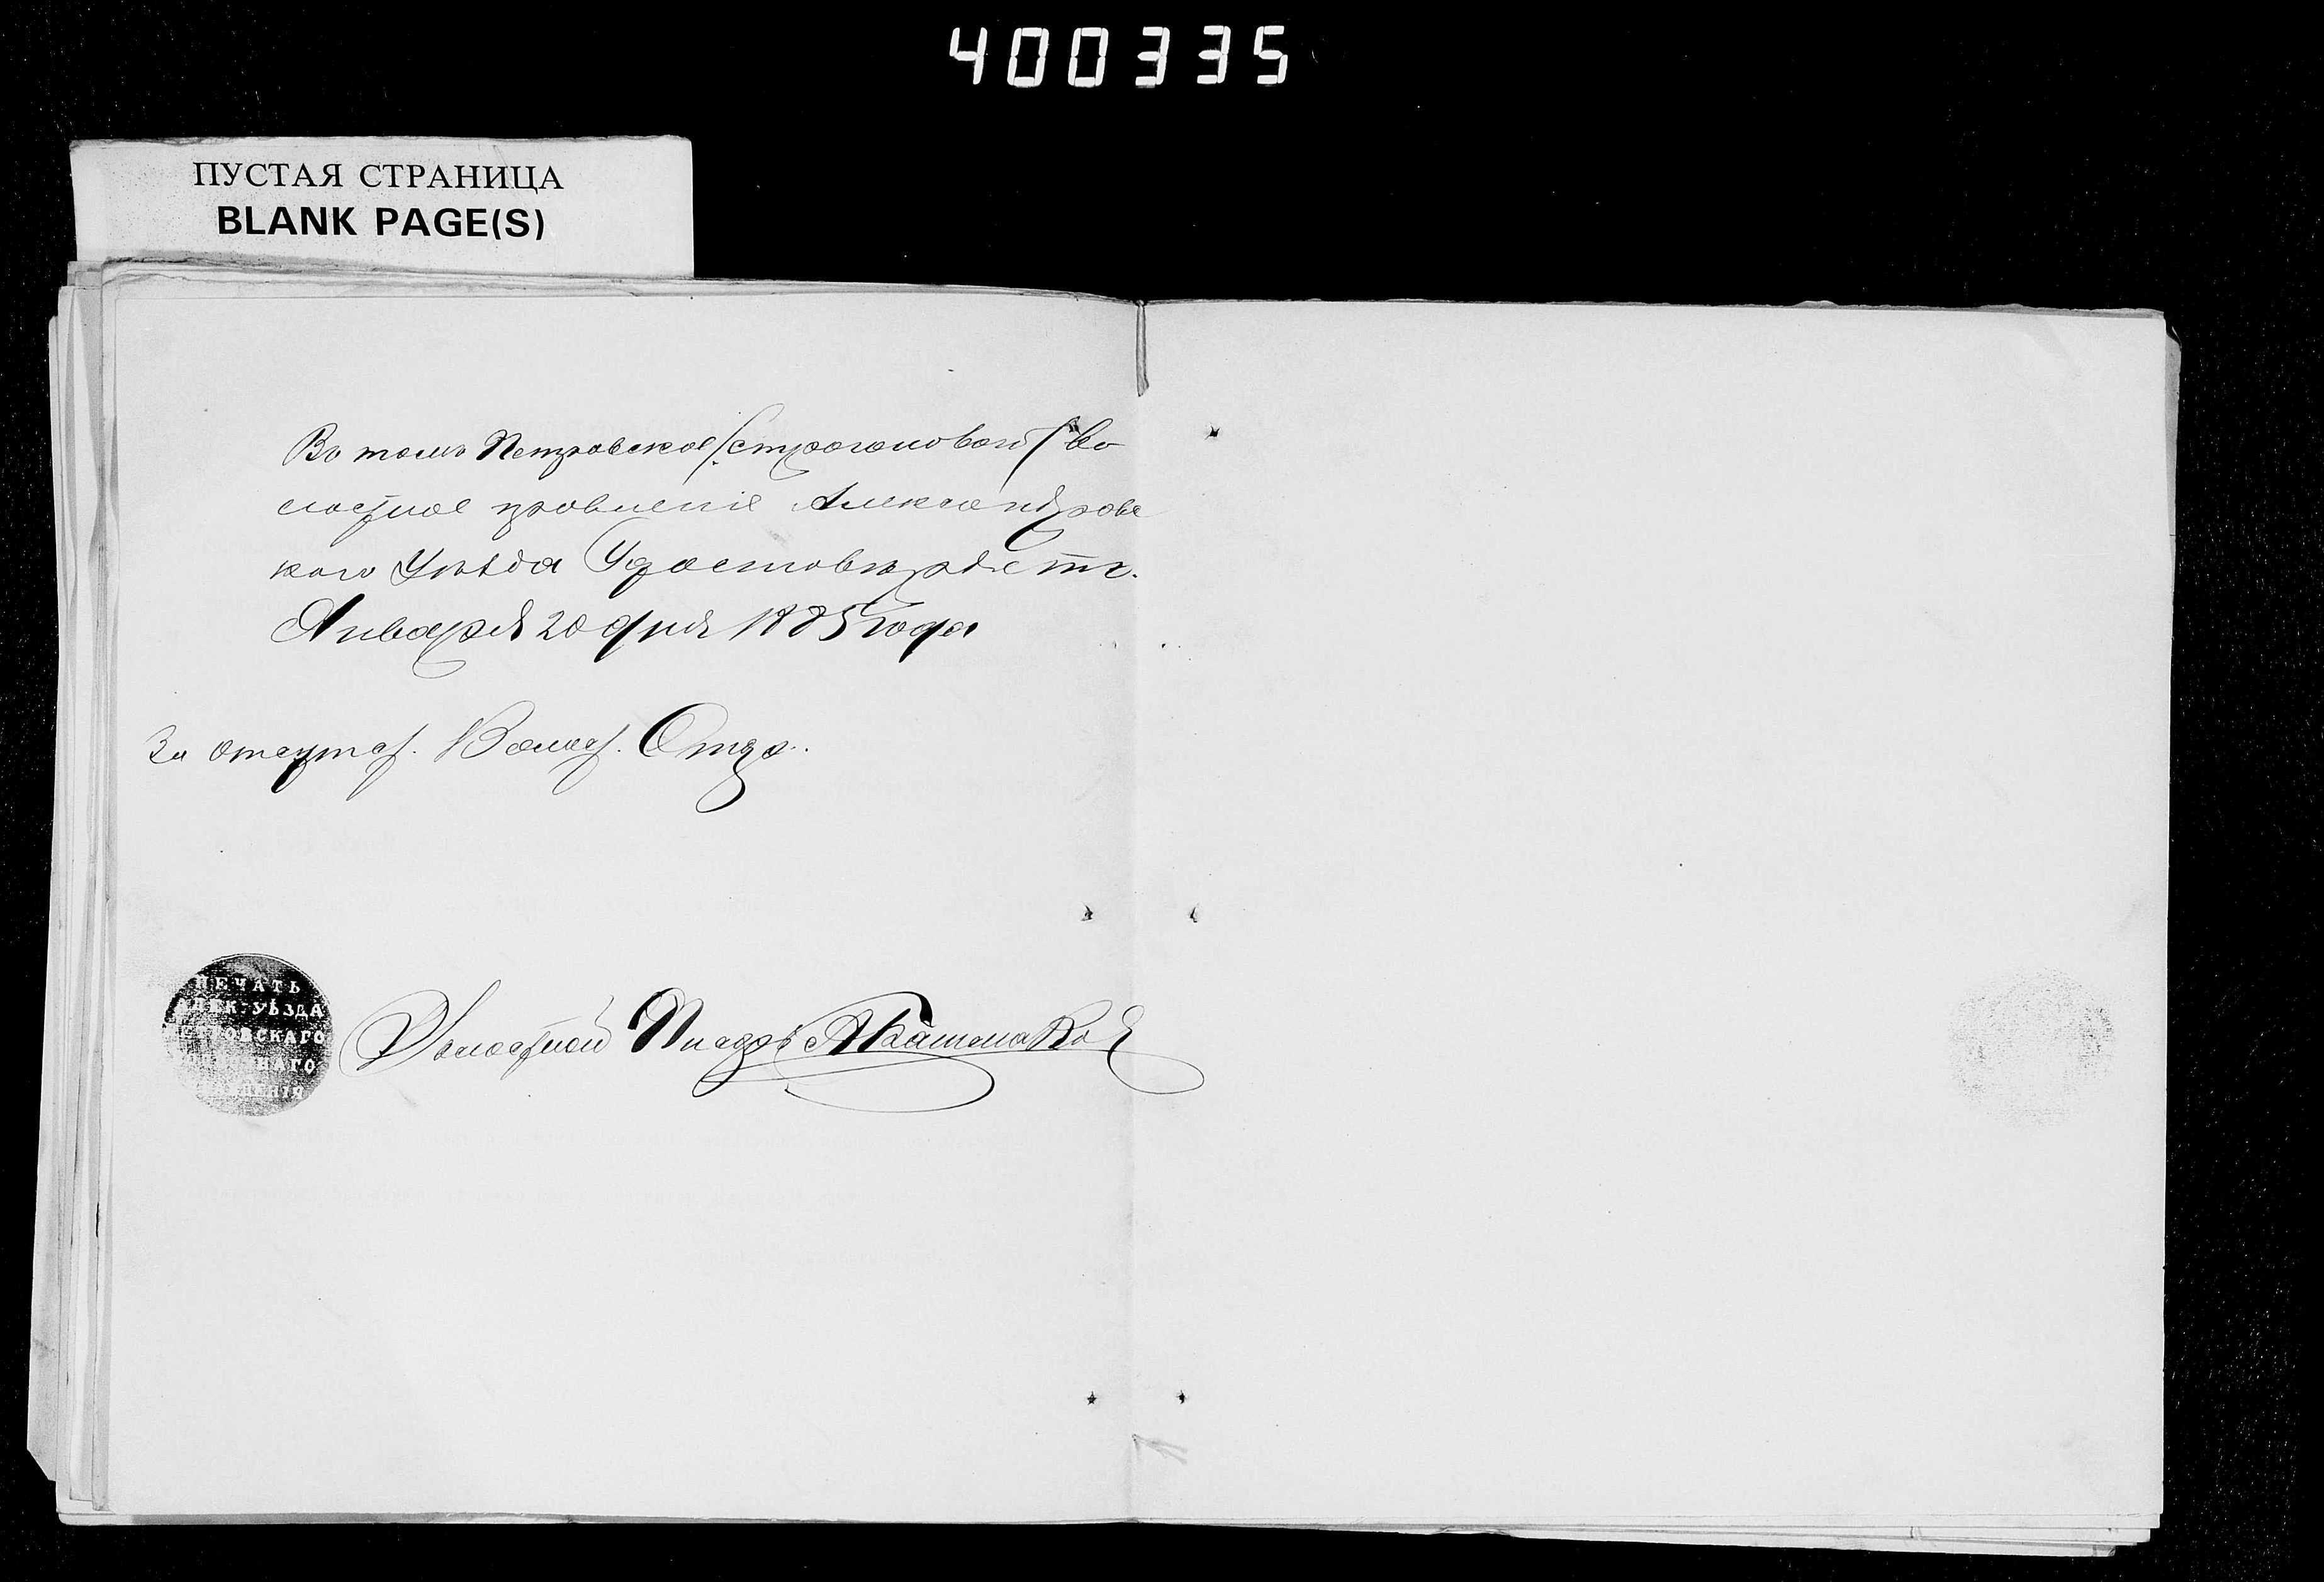 400335
ПУСТАЯ СТРАНИЦА
BLANK PAGE(S)
Въ томъ Петровское /строгоновой/ во
лостное правленiе Александровс
каго Уѣзда Удостовѣряетъ.
Января 20 дня 1885 года
За отсутст. Волост. Стар.
ПЕЧАТЬ
АЛЕК-УѢЗДА
ПЕТРОВСКАГО
Волостной Писарь